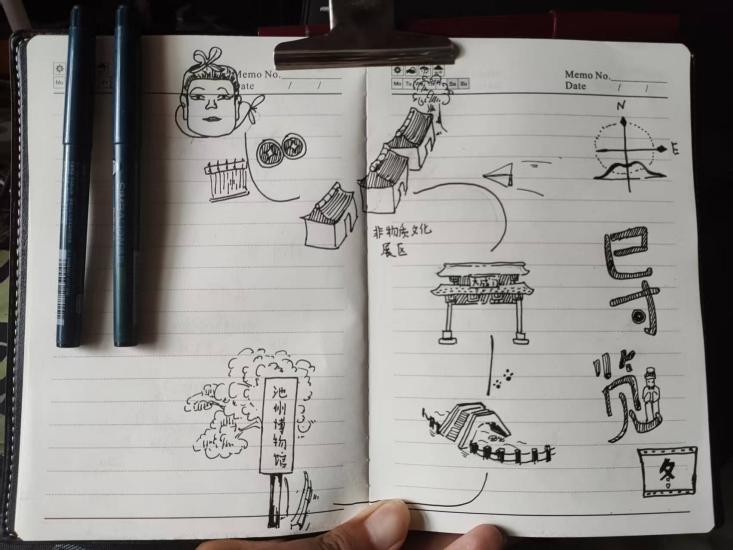 Memo No.
Date / /
Memo No.
Mo Tu Sa Su
Date / /
N
E
非物质文化
展区
大成门
导览
池州博物馆
冬